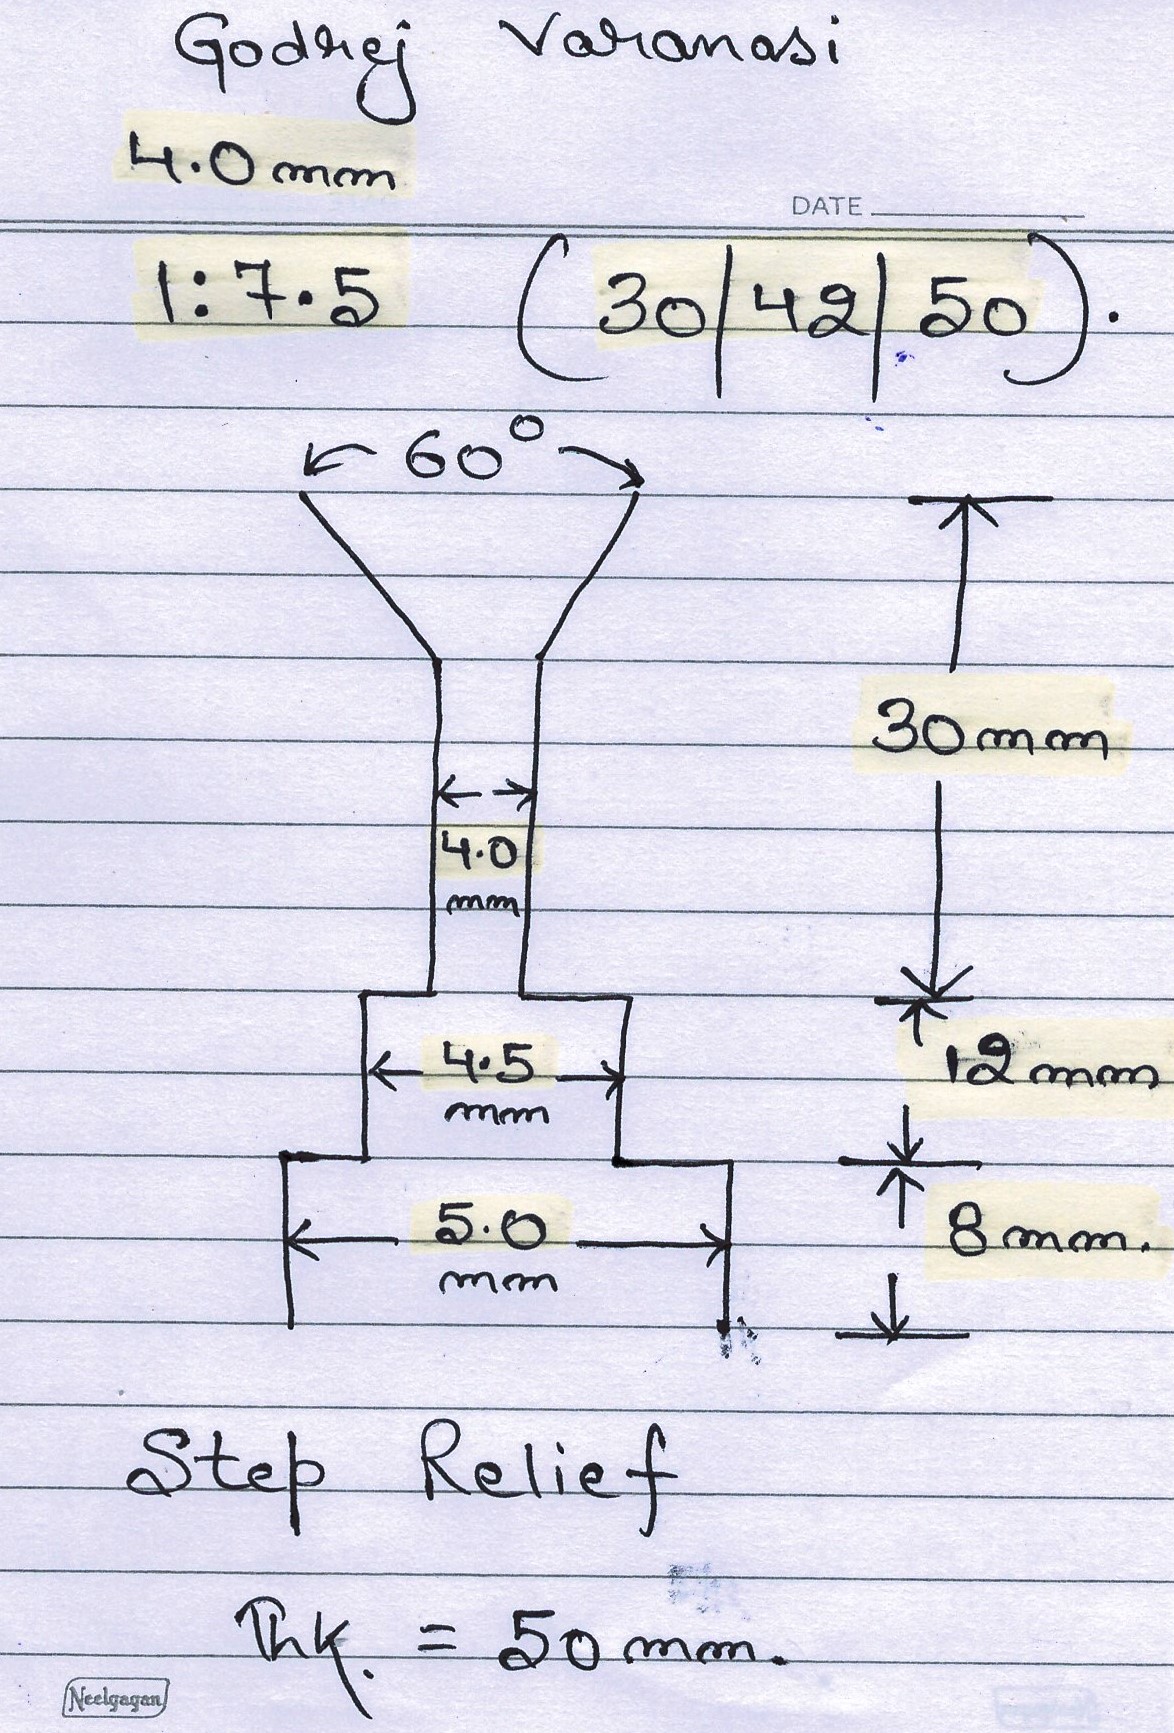 Godrej Varanasi
4.0 mm
DATE
1: 7.5 (30/42/50).
60°
30 mm
4.0
mm
4.5
mm
12 mm
5.0
mm
8 mm.
Step Relief
Thk. = 50 mm.
Neelgagan